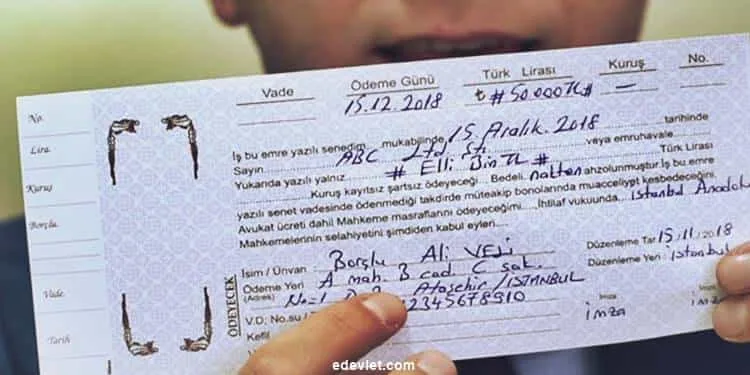 No.
Lira.
Kuruş
Borçlu.
Vade
Tarih
Vade Ödeme Günü Türk Lirası Kuruş No.
15.12.2018 ₺ #50.000TL# —
İş bu emre yazılı senedim mukabilinde 15 Aralık 2018 tarihinde
Sayın ABC Ltd Şti veya emruhavale
Yukarıda yazılı yalnız # Elli Bin TL # Türk Lirası
Kuruş kayıtsız şartsız ödeyeceği Bedeli nakten ahzolunmuştur. İş bu emre
yazılı senet vadesinde ödenmediği takdirde müteakip bonolarında muacceliyet kesbedeceğini,
Avukat ücreti dahil Mahkeme masraflarını ödeyeceğimi İhtilaf vukuunda istanbul Anadolu
Mahkemelerinin selahiyetini şimdiden kabul eyleri
ÖDEYECEK
İsim / Ünvan : Borçlu Ali VELİ
Ödeme Yeri : A mah. B cad. C sok.
(Adres) No=1 Ataşehir/İSTANBUL
V.D; No.su / 12345678910
Kefil
Düzenleme Tar 15/11/2018
Düzenleme Yeri : istanbul
İmza İmza
imza imza
edevlet.com